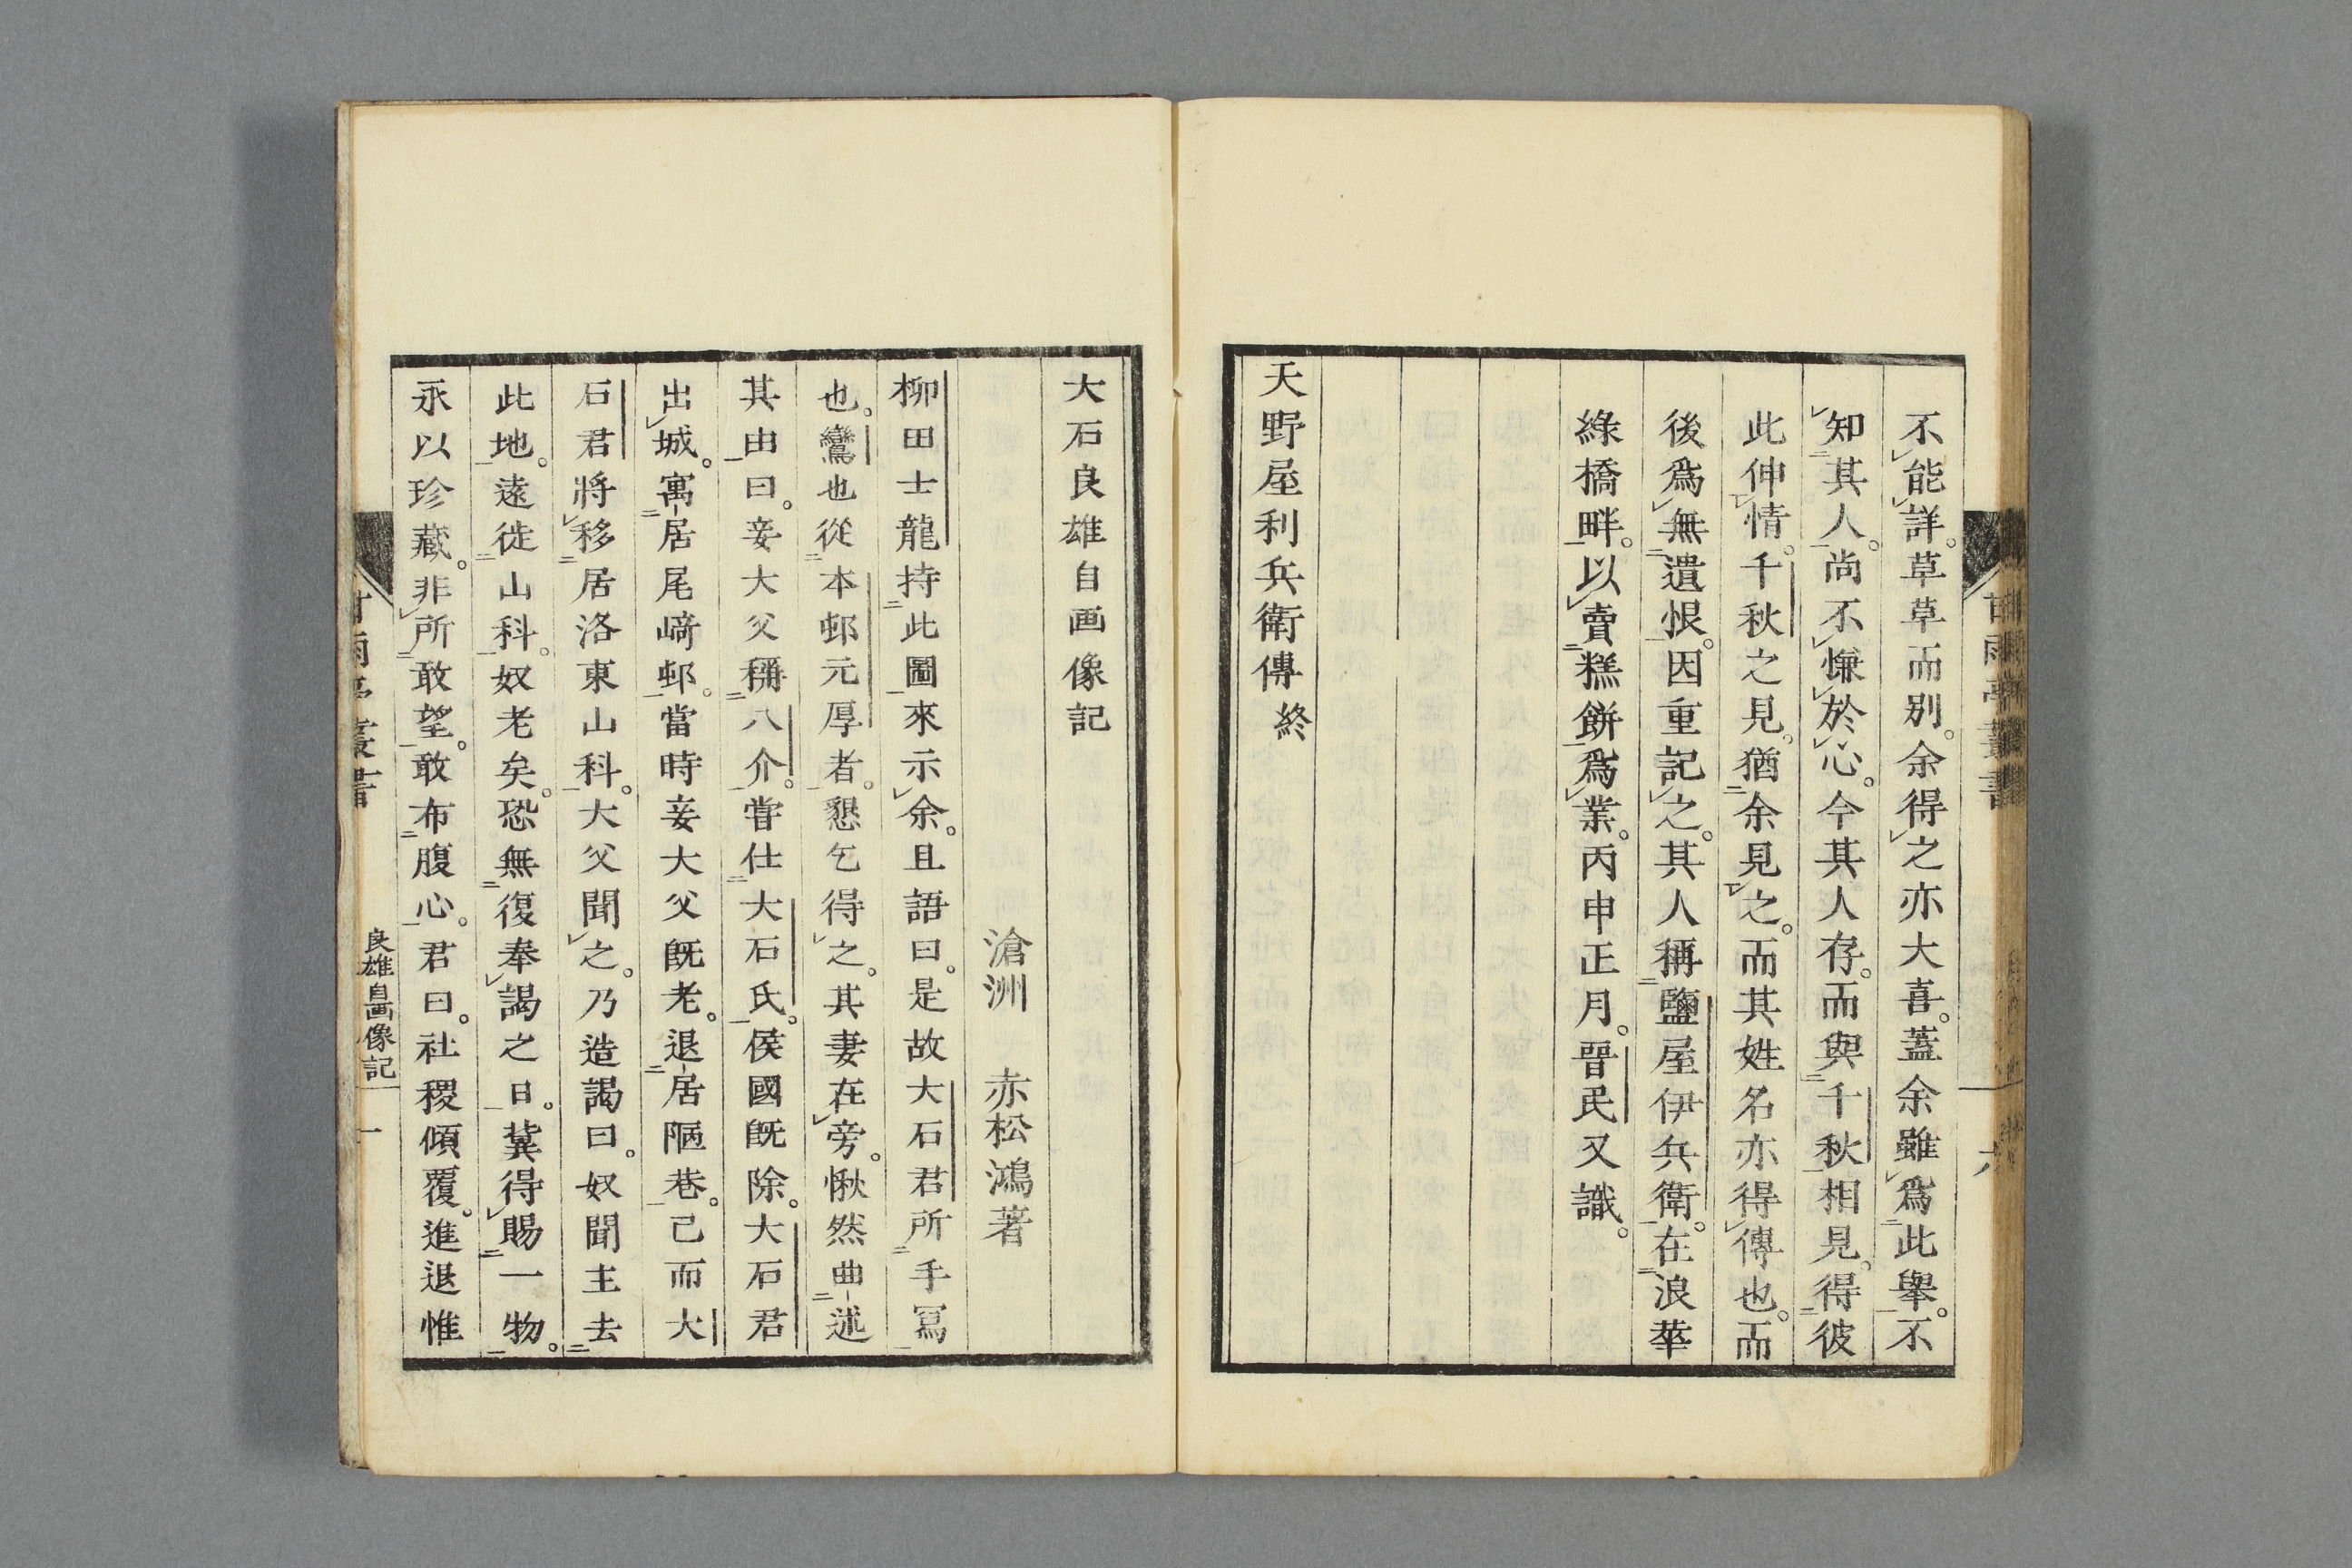 不能詳。草草而別。余得之亦大喜。蓋余雖爲此舉。不
知其人。尚不慊於心。今其人存。而與千秋相見。得彼
此伸情。千秋之見。猶余見之。而其姓名亦得傳也。而
後爲無遺恨。因重記之。其人稱鹽屋伊兵衛。在浪華
綠橋畔。以賣糕餅爲業。丙申正月。晉民又識。
天野屋利兵衛傳終
大石良雄自画像記
滄洲 赤松鴻著
柳田士龍持此圖來示余。且語曰。是故大石君所手寫
也。鸞也從本邨元厚者。懇乞得之。其妻在旁。愀然曲述
其由曰。妾大父稱八介。嘗仕大石氏。侯國既除。大石君
出城。寓居尾崎邨。當時妾大父既老。退居陋巷。已而大
石君將移居洛東山科。大父聞之。乃造謁曰。奴聞主去
此地。遠徙山科。奴老矣。恐無復奉謁之日。冀得賜一物。
永以珍藏。非所敢望。敢布腹心。君曰。社稷傾覆。進退惟
良雄自畫像記 一